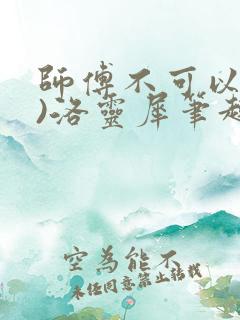 師傅不可以
)洛靈犀筆趣
空為能不
未任同意禁止转载